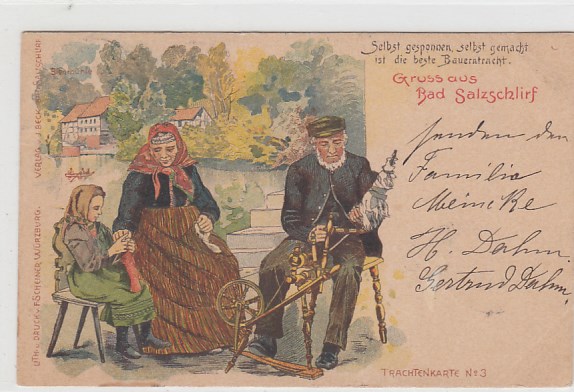 Selbst gesponnen, selbst gemacht
ist die beste Bauerntracht.
Gruss aus
Bad Salzschlirf
senden den
Familie
Meincke
H. Dahm.
Gertrud Dahm.
TRACHTENKARTE No 3
LITH. u. DRUCK v. F. SCHEINER, WÜRZBURG.
VERLAG v. BECK